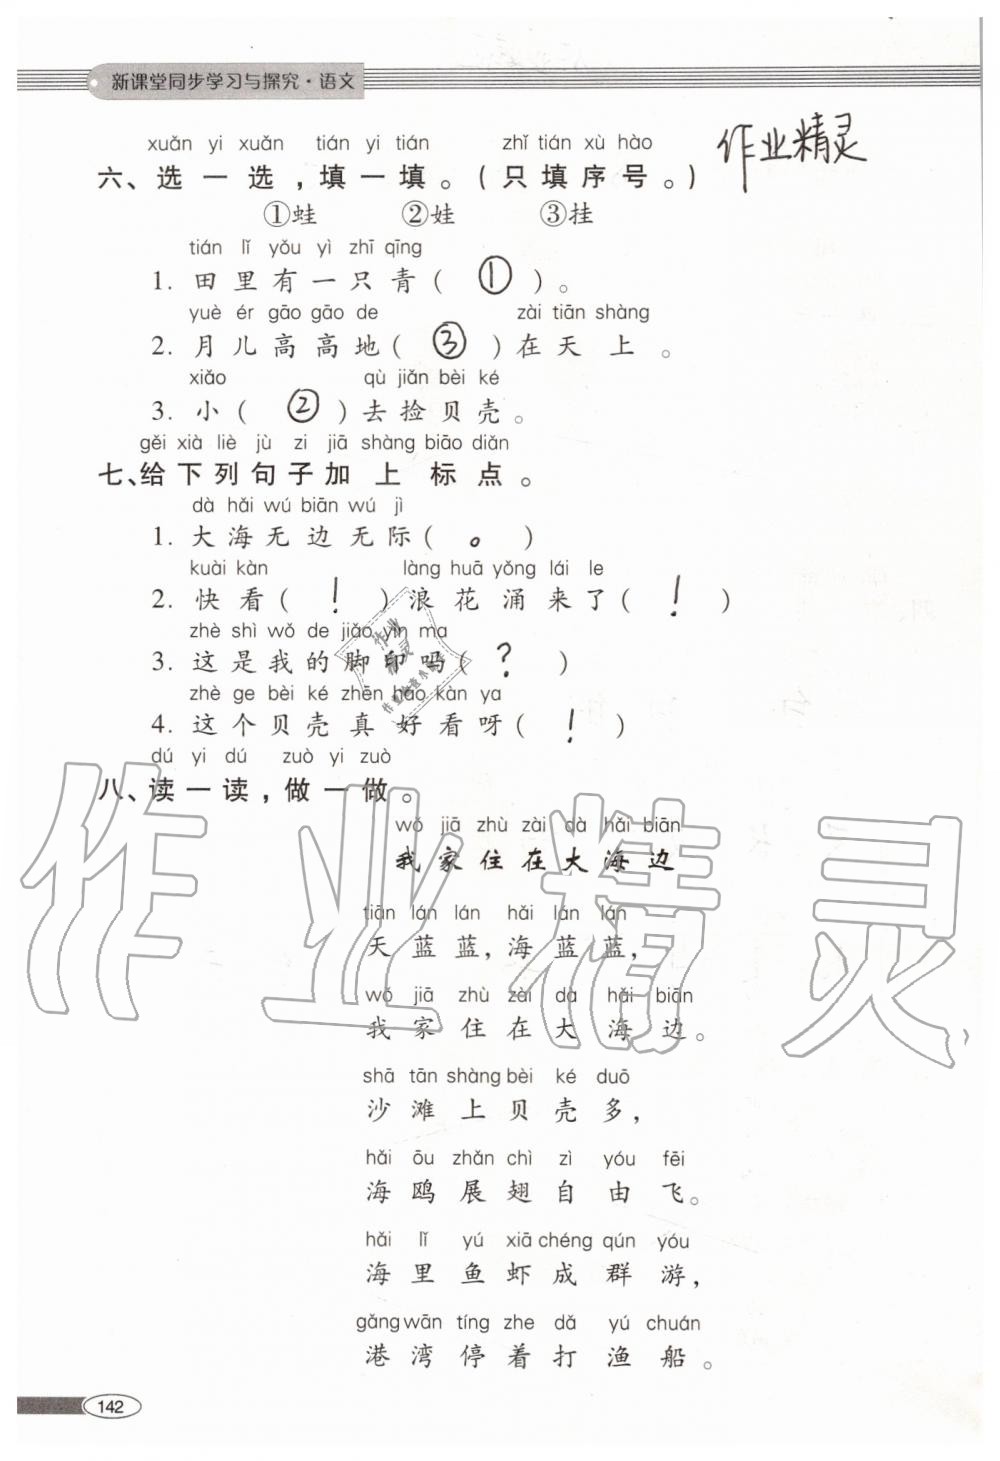 新课堂同步学习与探究·语文
作业精灵
xuǎn yi xuǎn tián yi tián zhǐ tián xù hào
六、选一选，填一填。(只填序号。)
①蛙 ②娃 ③挂
tián lǐ yǒu yì zhī qīng
1. 田里有一只青( ① )。
yuè ér gāo gāo de zài tiān shàng
2. 月儿高高地( ③ )在天上。
xiǎo qù jiǎn bèi ké
3. 小( ② )去捡贝壳。
gěi xià liè jù zi jiā shàng biāo diǎn
七、给下列句子加上标点。
dà hǎi wú biān wú jì
1. 大海无边无际( 。 )
kuài kàn làng huā yǒng lái le
2. 快看( ! )浪花涌来了( ! )
zhè shì wǒ de jiǎo yìn ma
3. 这是我的脚印吗( ? )
zhè ge bèi ké zhēn hǎo kàn ya
4. 这个贝壳真好看呀( ! )
dú yi dú zuò yi zuò
八、读一读，做一做。
wǒ jiā zhù zài dà hǎi biān
我家住在大海边
tiān lán lán hǎi lán lán
天蓝蓝，海蓝蓝，
wǒ jiā zhù zài dà hǎi biān
我家住在大海边。
shā tān shàng bèi ké duō
沙滩上贝壳多，
hǎi ōu zhǎn chì zì yóu fēi
海鸥展翅自由飞。
hǎi lǐ yú xiā chéng qún yóu
海里鱼虾成群游，
gǎng wān tíng zhe dǎ yú chuán
港湾停着打渔船。
142
作业精灵